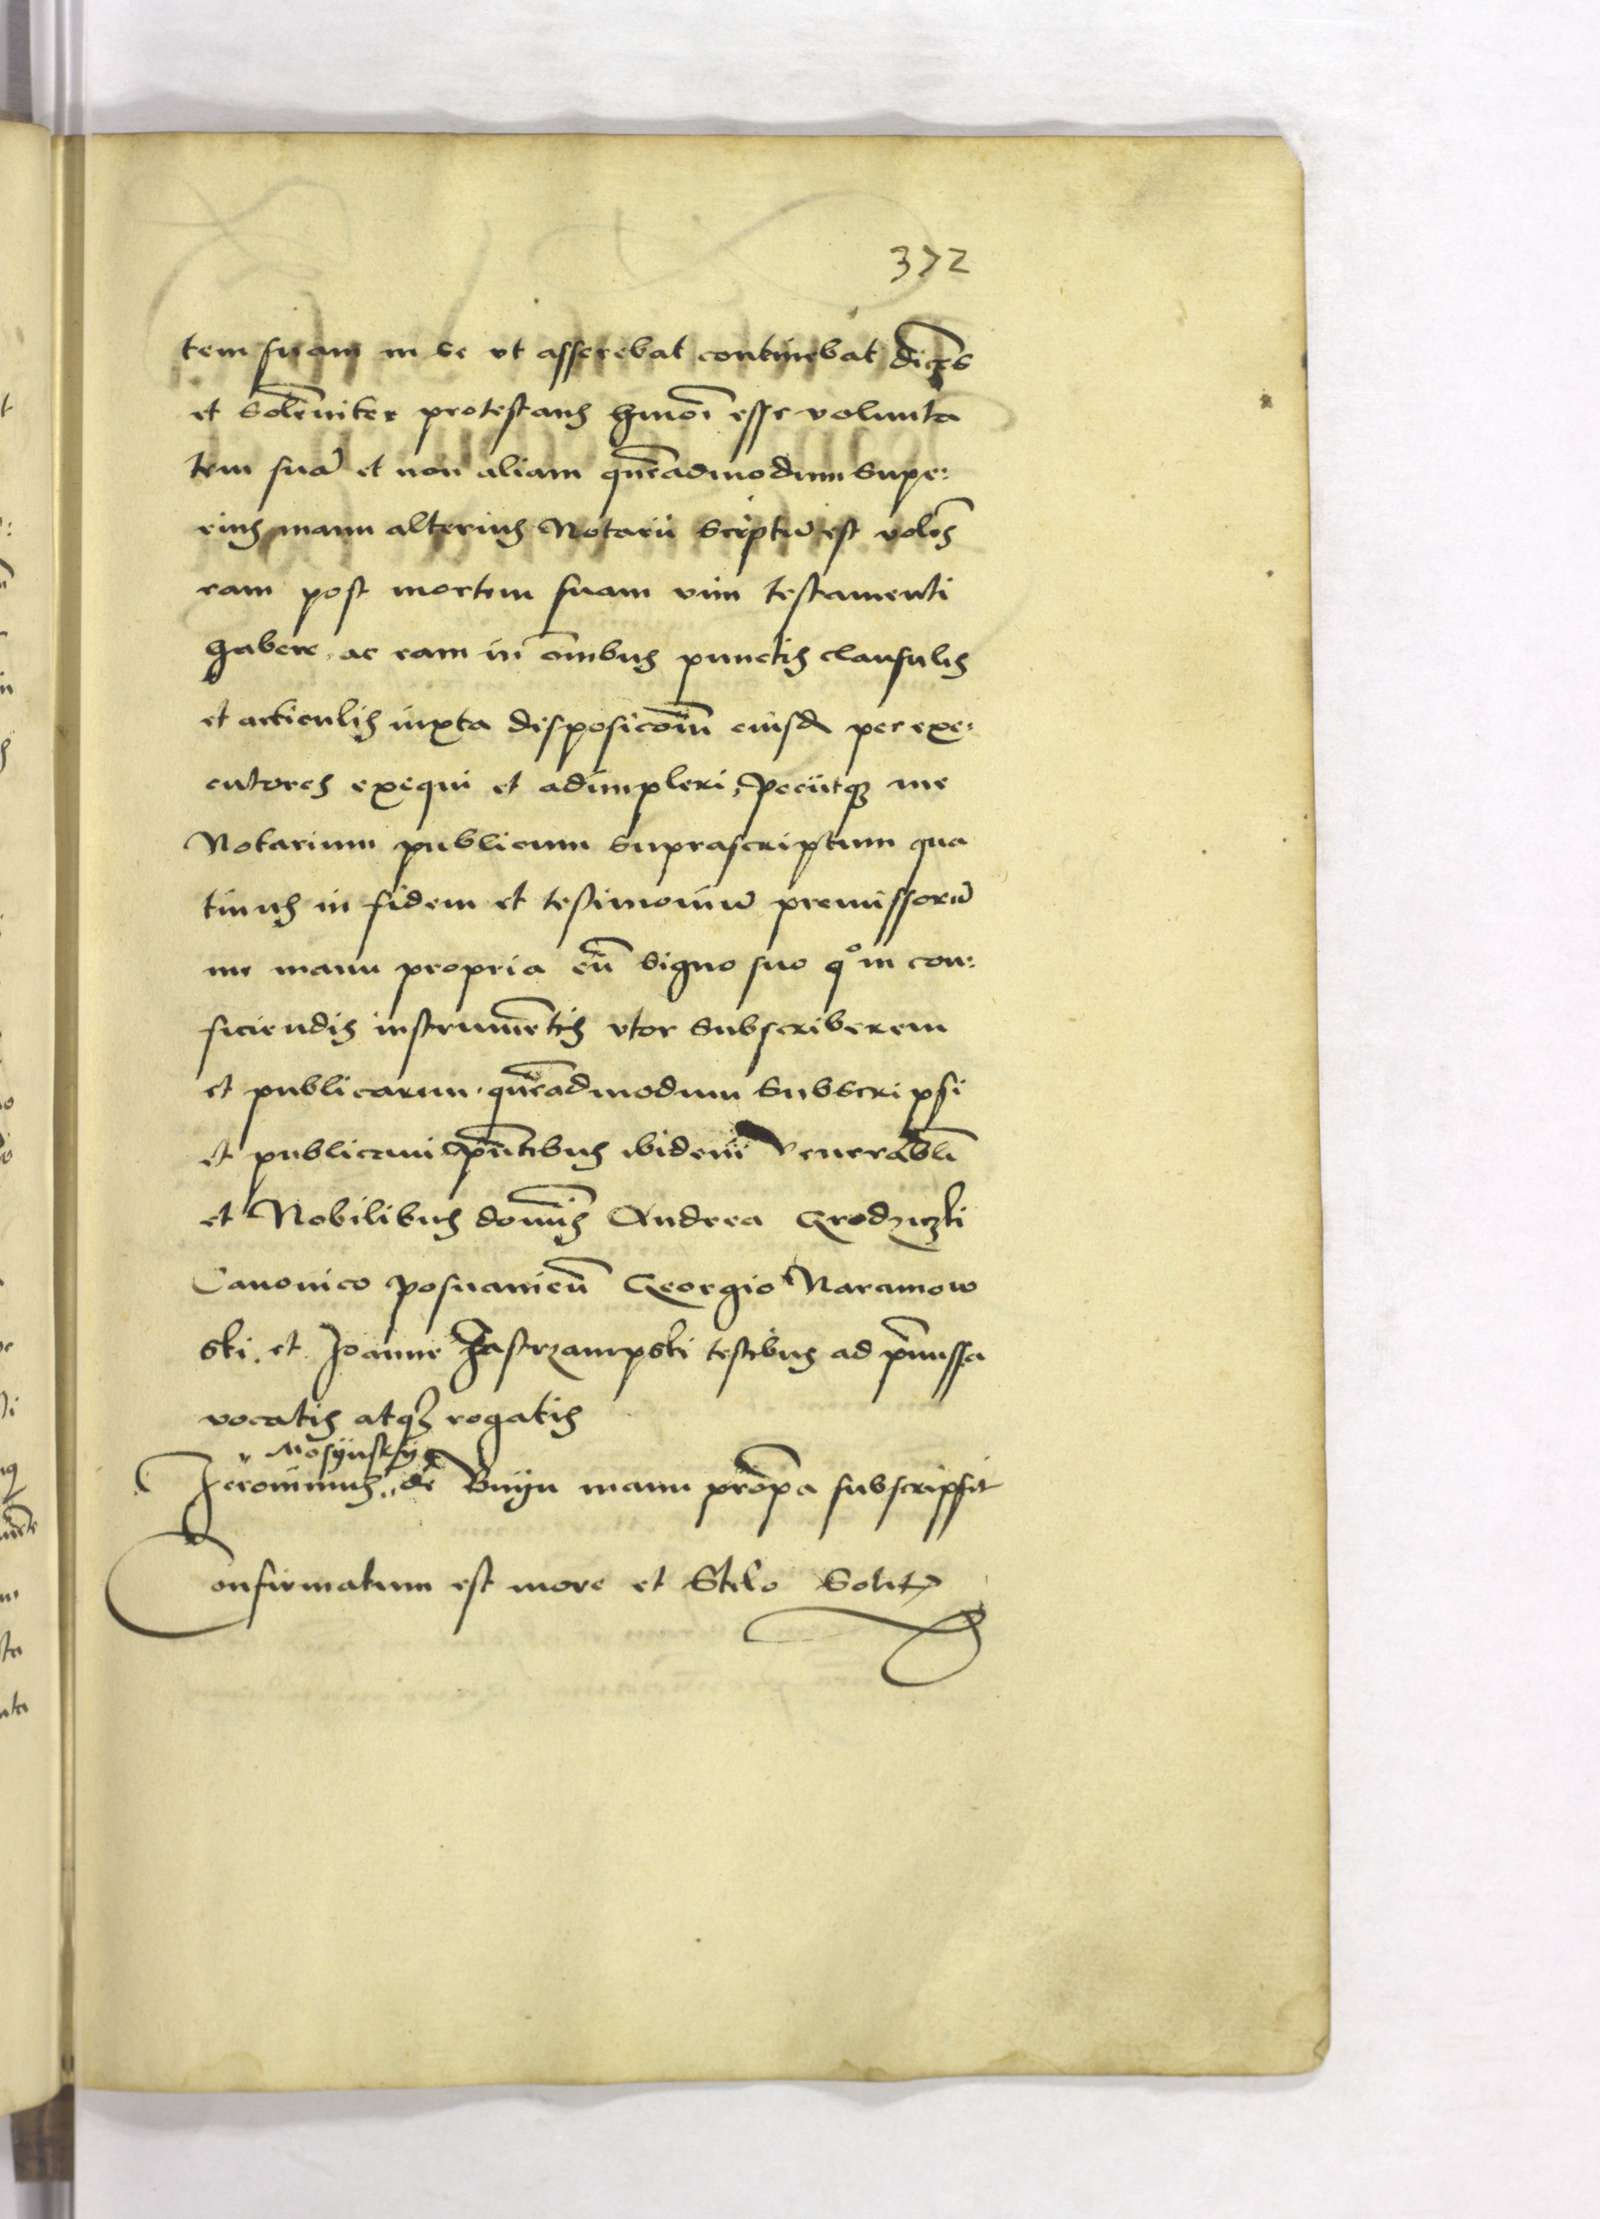 372
tem suam in se vt asserebat continebat dicẽs
et Solẽniter protestans hmõi esse volunta
tem suã et non aliam quẽadmodum Supe:
rius manu alterius Notarii Scriptũ est volẽs
eam post mortem suam vim testamenti
habere, ac eam in õmbus punctis clausulis
et articulis iuxta disposicõm eiusd per exe:
cutores exequi et adimpleri, Peciitq me
Notarium publicum Suprascriptum qua
tinus in fidem et testimoniũ premissorũ
me manu propria cũ Signo suo qᵒ in con:
ficiendis instrumẽtis vtor Subscriberem
et publicarem quẽadmodum Subscripsi
et publicaui pñtibus ibidem Venerabli
et Nobilibus dominis Andrea Grodziczki
Canonico Posnanieñ Georgio Naramow
ski et Joanne Jastrzampski testibus ad pñussa
vocatis atq rogatis
Mosÿnskÿ
Jeronimus de Bnÿn manu prõpa subscripsit
Confirmatum est more et Stilo Solit